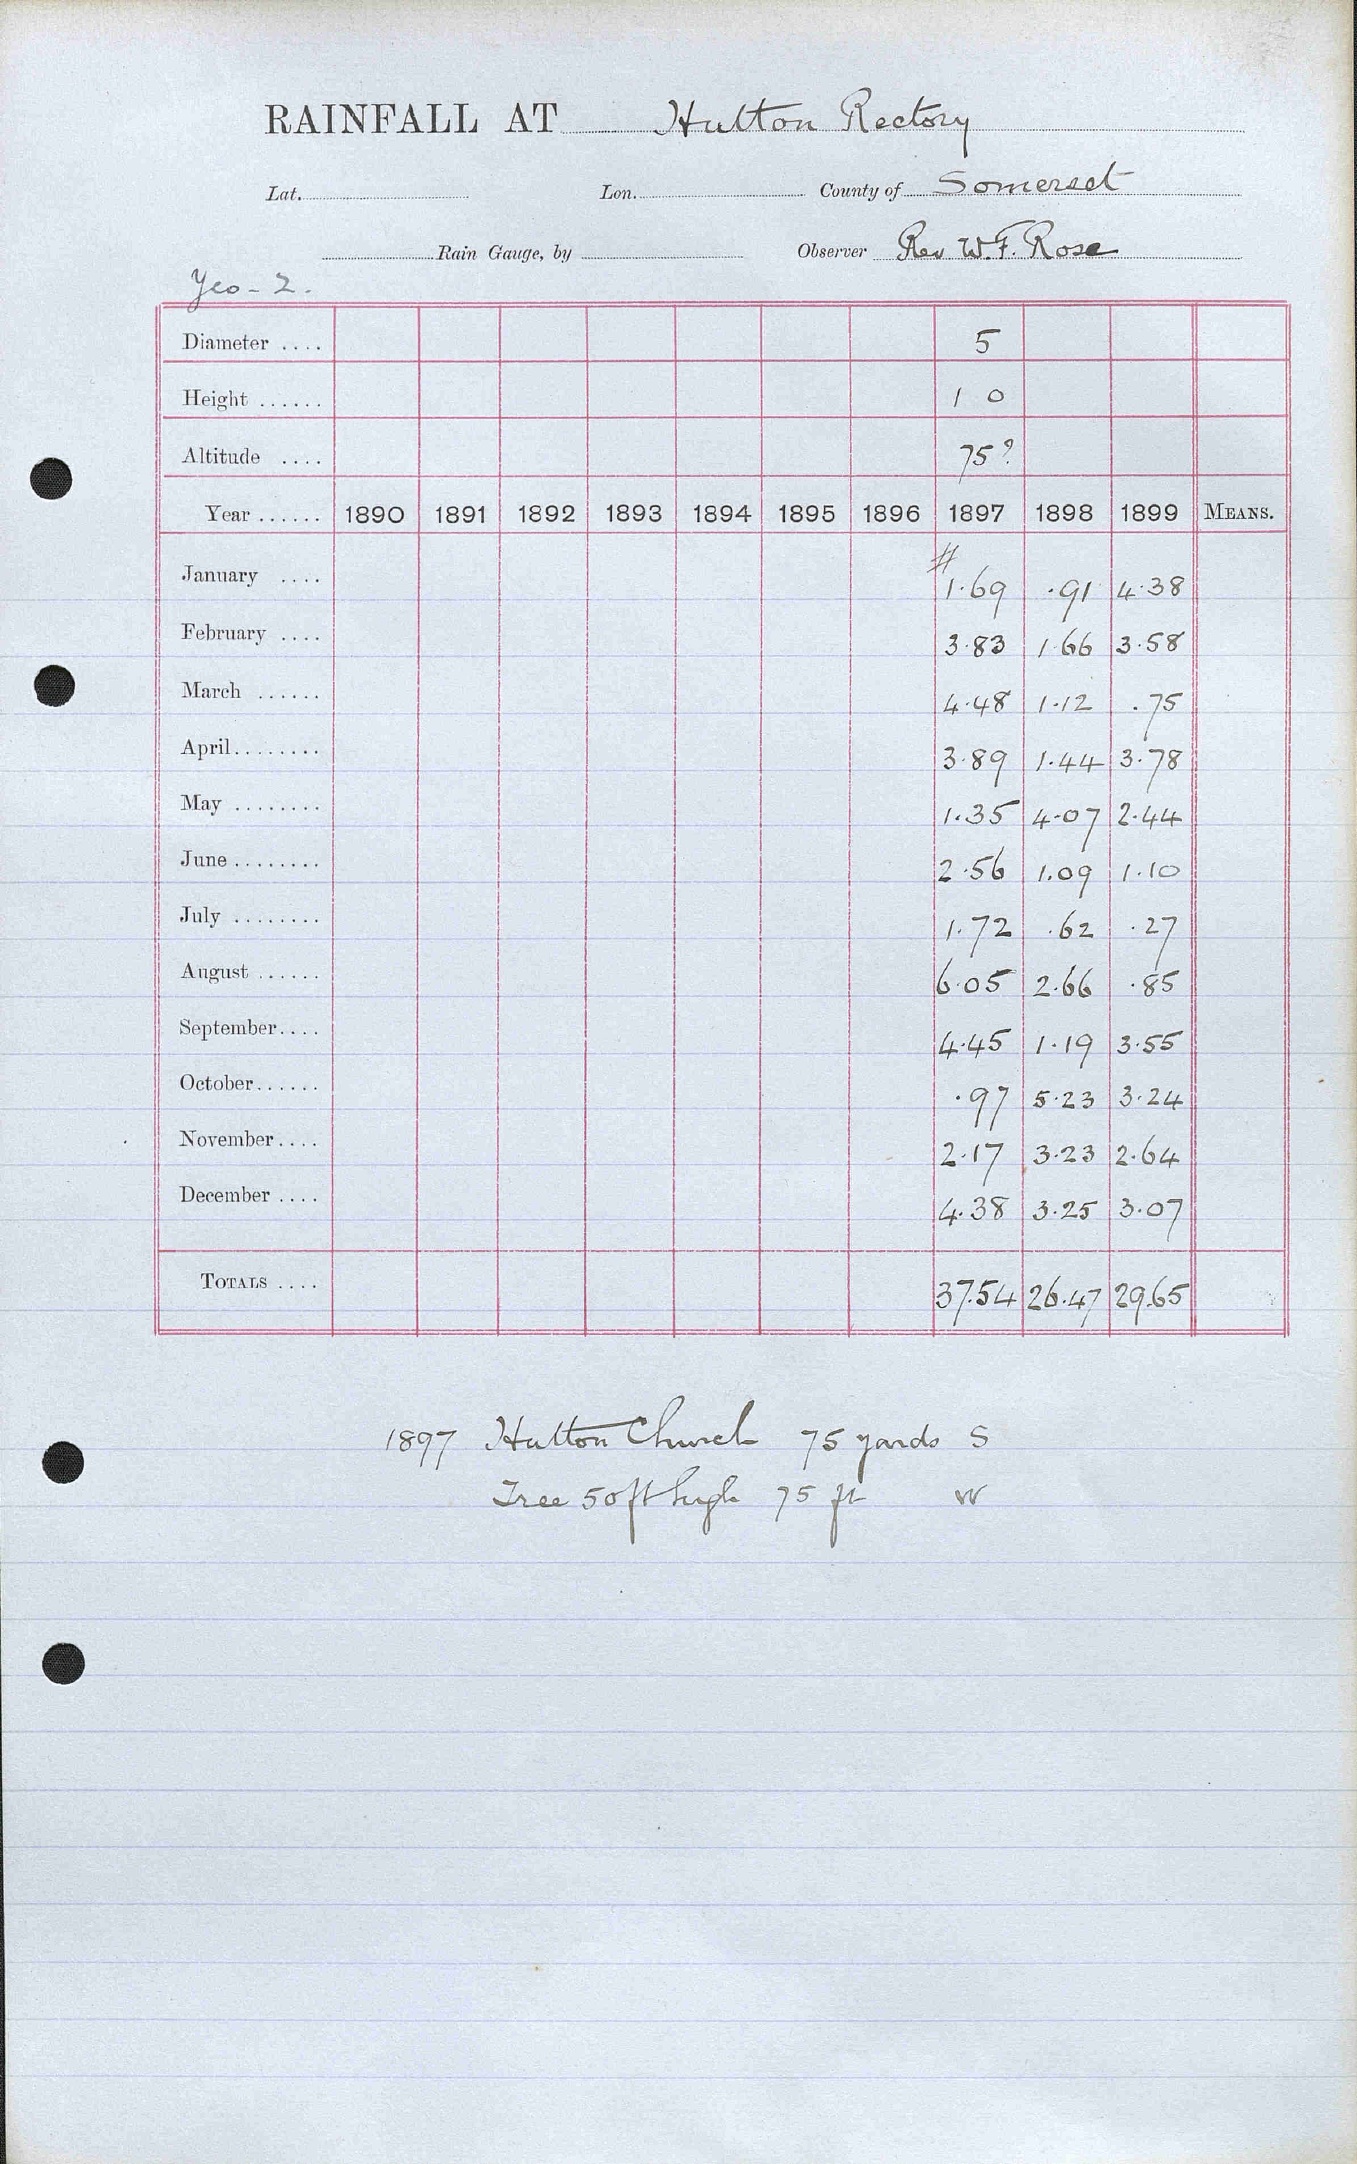 RAINFALL AT Hutton Rectory
Lat. Lon. County of Somerset
Rain Gauge, by Observer Rev W. F. Rose
Yeo - 2.
Diameter .... 5
Height ...... 1 0
Altitude .... 75?
Year ...... 1890 1891 1892 1893 1894 1895 1896 1897 1898 1899 MEANS.
#
January .... 1.69 .91 4.38
February .... 3.83 1.66 3.58
March ...... 4.48 1.12 .75
April........ 3.89 1.44 3.78
May ........ 1.35 4.07 2.44
June ........ 2.56 1.09 1.10
July ........ 1.72 .62 .27
August ...... 6.05 2.66 .85
September.... 4.45 1.19 3.55
October...... .97 5.23 3.24
November.... 2.17 3.23 2.64
December .... 4.38 3.25 3.07
TOTALS .... 37.54 26.47 29.65
1897 Hutton Church 75 yards S
Tree 50 ft high 75 ft W